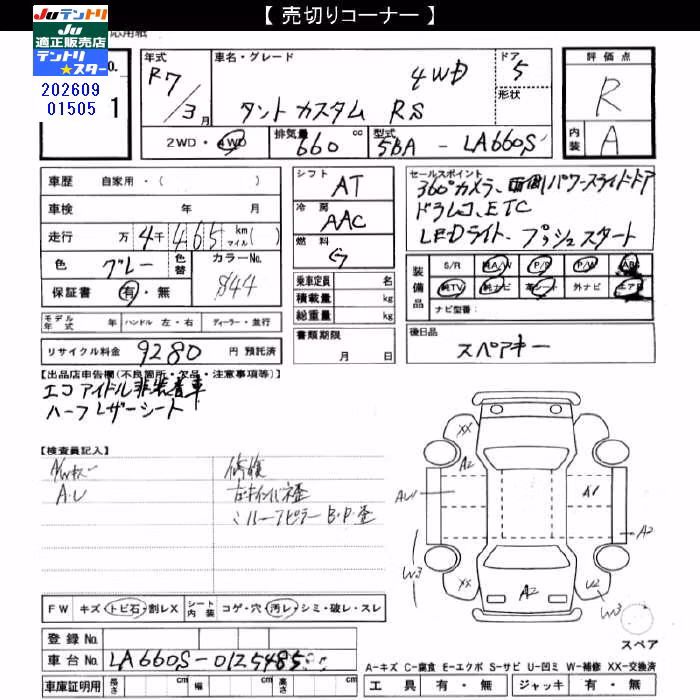 【 売切りコーナー 】
JUテントリ
JU
適正販売店
テントリ
★スター
応用紙
No.
202609
01505
1
年式
R7/3月
車名・グレード
4WD
タントカスタム RS
ドア
5
形状
評価点
R
内装
A
2WD・4WD
排気量
660 cc
型式
5BA - LA660S
車歴 自家用・( )
車検 年 月
走行 万 4千 465 km マイル( )
色 グレー 色替 カラーNo. S44
保証書 有・無
モデル年式 年 ハンドル 左・右 ディーラー・並行
リサイクル料金 9280 円 預託済
シフト
AT
冷房
AAC
燃料
G
乗車定員 名
積載量 kg
総重量 kg
書類期限
月 日
セールスポイント
360°カメラ、両側パワースライドドア
ドラレコ、ETC
LEDライト、プッシュスタート
装備品
S/R 純A/W P/S P/W ABS
純TV 純ナビ 革シート 外ナビ エアB
ナビ型番:
後日品
スペアキー
【出品店申告欄(不良箇所・欠品・注意事項等)】
エコアイドル非装着車
ハーフレザーシート
【検査員記入】
A・U
修複
XX
A2
AU1
A1
A2
W3
XX
A2
U2
W3
スペア
FW キズ・トビ石・割レX シート内装 コゲ・穴・汚レ・シミ・破レ・スレ
登録No.
車台No. LA660S-0125485
車庫証明用 長さ cm 幅 cm 高さ cm
A-キズ C-腐食 E-エクボ S-サビ U-凹ミ W-補修 XX-交換済
工具 有・無 ジャッキ 有・無